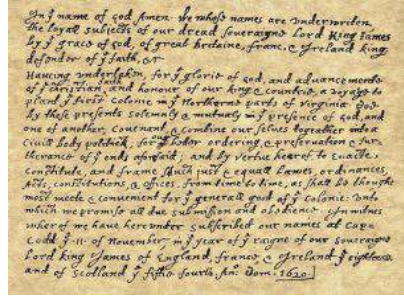 In yͤ name of god Amen. We whose names are underwriten,
the loyall subjects of our dread soveraigne Lord King James
by yͤ grace of god, of great Britaine, franc, & Ireland king,
defender of yͤ faith, &c
Haveing undertaken, for yͤ glorie of god, and advancemente
of yͤ christian faith and honour of our king & countrie, a voyage to
plant yͤ first colonie in yͤ Northerne parts of Virginia. Doe
by these presents solemnly & mutualy in yͤ presence of god, and
one of another, covenant, & combine our selves togeather into a
Civill body politick, for our better ordering, & preservation & fur-
therance of yͤ ends aforesaid; and by vertue hearof to Enacte,
constitute, and frame shuch just & equall Lawes, ordinances,
Acts, constitutions, & offices, from time to time, as shall be thought
most meete & convenient for yͤ generall good of yͤ Colonie: Unto
which we promise all due submission and obedience. In witnes
wherof we have here under subscribed our names at Cap-
Codd yͤ .11. of November, in yͤ year of yͤ raigne of our soveraigne
Lord king James of England, france, & Ireland yͤ eighteenth
and of Scotland yͤ fiftie fourth. Anº: Dom. 1620.